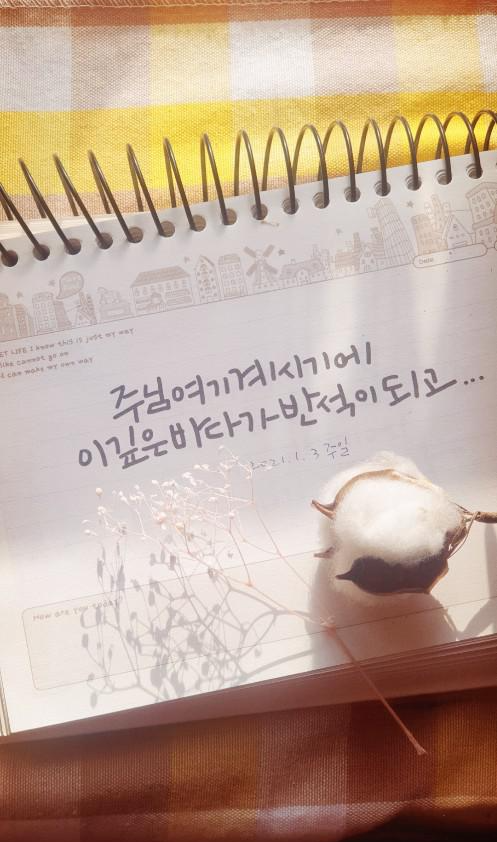 Date.
ET LIFE I know this is just my way
like cannot go on
I can make my own way
주님여기계시기에
이깊은바다가반석이되고...
2021.1.3 주일
How are you today?